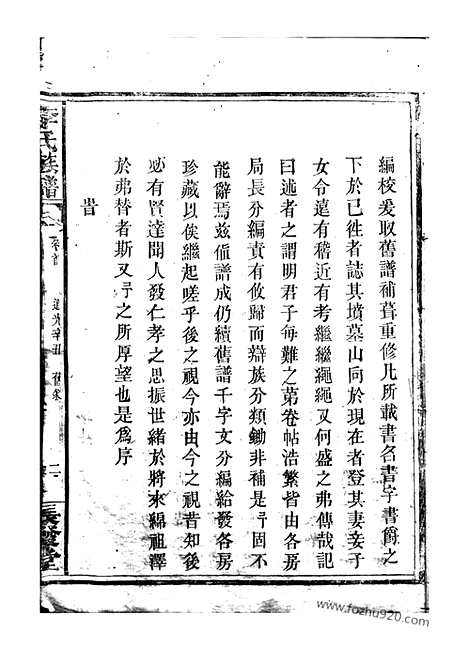 編校爰取舊譜補葺重修凡所載書名書字書爵之
下於已徃者誌其墳墓山向於現在者登其妻妾子
女令遠有稽近有考繼繼繩繩又何盛之弗傳哉記
曰述者之謂明君子每難之第卷帖浩繁皆由各房
局長分編責有攸歸而辯族分類鋤非補是予固不
能辭焉兹値譜成仍續舊譜千字文分編給發各房
珍藏以俟繼起嗟乎後之視今亦由今之視昔知後
必有賢達聞人發仁孝之思振世緒於將來綿祖澤
於弗替者斯又予之所厚望也是為序
旹
李氏族譜
卷首
道光辛丑 舊序
二
長發堂
www.fozhu920.com